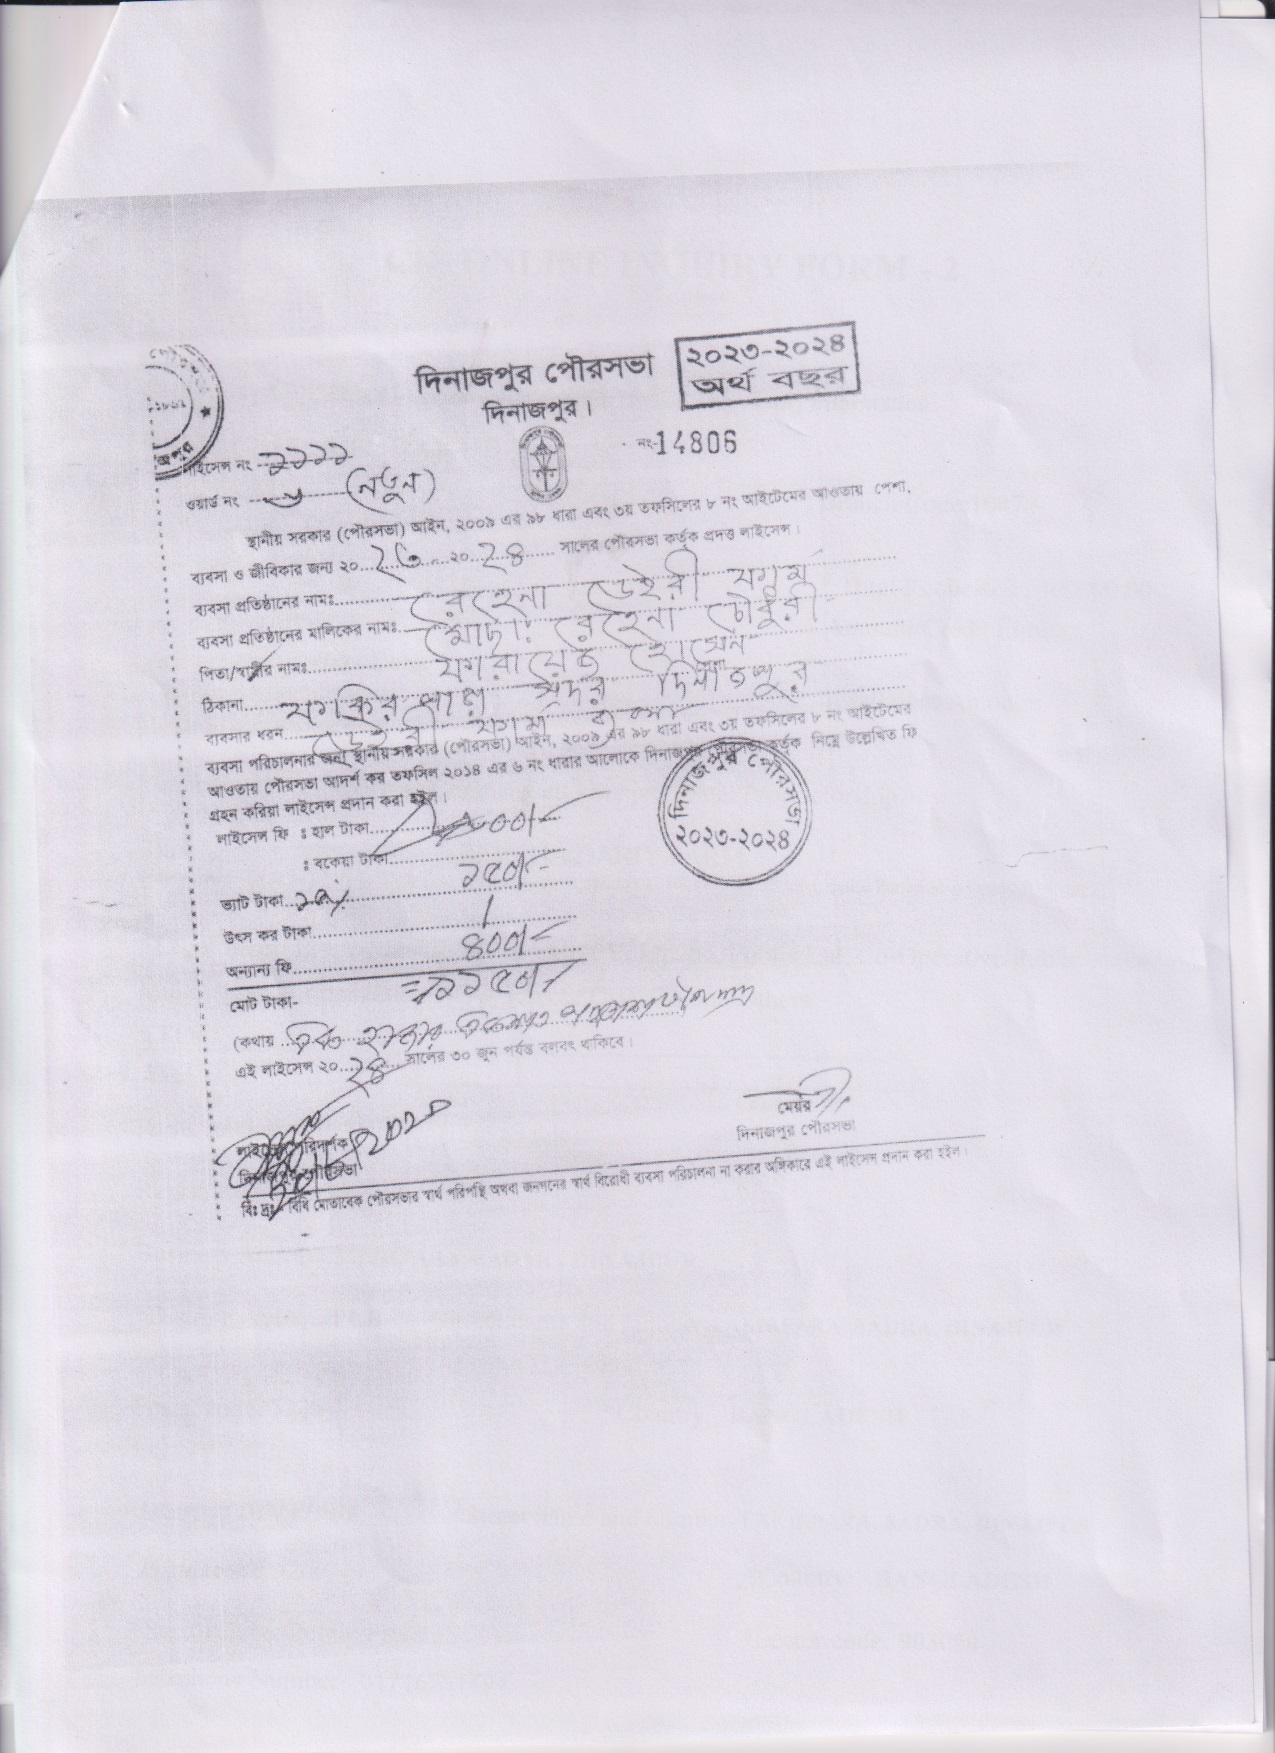 ২০২৩-২০২৪
অর্থ বছর
দিনাজপুর পৌরসভা
দিনাজপুর।
নং-14806
লাইসেন্স নং ১১১১
ওয়ার্ড নং ৬ (নতুন)
স্থানীয় সরকার (পৌরসভা) আইন, ২০০৯ এর ৯৮ ধারা এবং ৩য় তফসিলের ৮ নং আইটেমের আওতায় পেশা,
ব্যবসা ও জীবিকার জন্য ২০...২৩...২০...২৪... সালের পৌরসভা কর্তৃক প্রদত্ত লাইসেন্স।
ব্যবসা প্রতিষ্ঠানের নামঃ রেহেনা ডেইরী ফার্ম
ব্যবসা প্রতিষ্ঠানের মালিকের নামঃ মোছা: রেহেনা চৌধুরী
পিতা/স্বামীর নামঃ হোসেন
ঠিকানা সদর দিনাজপুর
ব্যবসার ধরন ডেইরী ফার্ম
ব্যবসা পরিচালনার জন্য স্থানীয় সরকার (পৌরসভা) আইন, ২০০৯ এর ৯৮ ধারা এবং ৩য় তফসিলের ৮ নং আইটেমের
আওতায় পৌরসভা আদর্শ কর তফসিল ২০১৪ এর ৬ নং ধারার আলোকে দিনাজপুর পৌরসভা কর্তৃক নিম্নে উল্লেখিত ফি
গ্রহন করিয়া লাইসেন্স প্রদান করা হইল।
দিনাজপুর পৌরসভা
২০২৩-২০২৪
লাইসেন্স ফি ঃ হাল টাকা
ঃ বকেয়া টাকা
ভ্যাট টাকা ১৫% ১৫০/-
উৎস কর টাকা
অন্যান্য ফি ৪০০/-
মোট টাকা-
(কথায় হাজার
এই লাইসেন্স ২০...২৪... সালের ৩০ জুন পর্যন্ত বলবৎ থাকিবে।
মেয়র
দিনাজপুর পৌরসভা
লাইসেন্স পরিদর্শক
দিনাজপুর পৌরসভা
বিঃ দ্রঃ- বিধি মোতাবেক পৌরসভার স্বার্থ পরিপন্থি অথবা জনগনের স্বার্থ বিরোধী ব্যবসা পরিচালনা না করার অঙ্গিকারে এই লাইসেন্স প্রদান করা হইল।